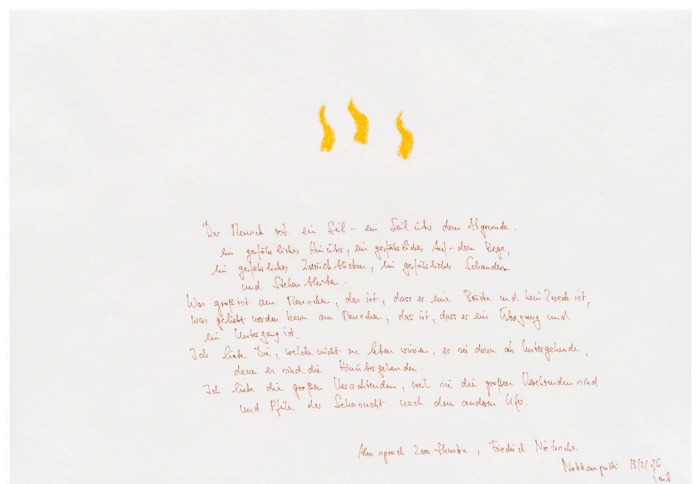 Der Mensch ist ein Seil – ein Seil über dem Abgrunde.
Ein gefährliches Hinüber, ein gefährliches Auf-dem Wege,
ein gefährliches Zurückblicken, ein gefährliches Schaudern
und Stehenbleiben.
Was groß ist am Menschen, das ist, dass er eine Brücke und kein Zweck ist,
was geliebt werden kann am Menschen, das ist, dass er ein Übergang und
ein Untergang ist.
Ich liebe Die, welche nicht zu leben wissen, es sei denn als Untergehende,
denn es sind die Hinübergehenden.
Ich liebe die großen Verachtenden, weil sie die großen Verehrenden sind
und Pfeile der Sehnsucht nach dem anderen Ufer.
Also sprach Zarathustra, Friedrich Nietzsche